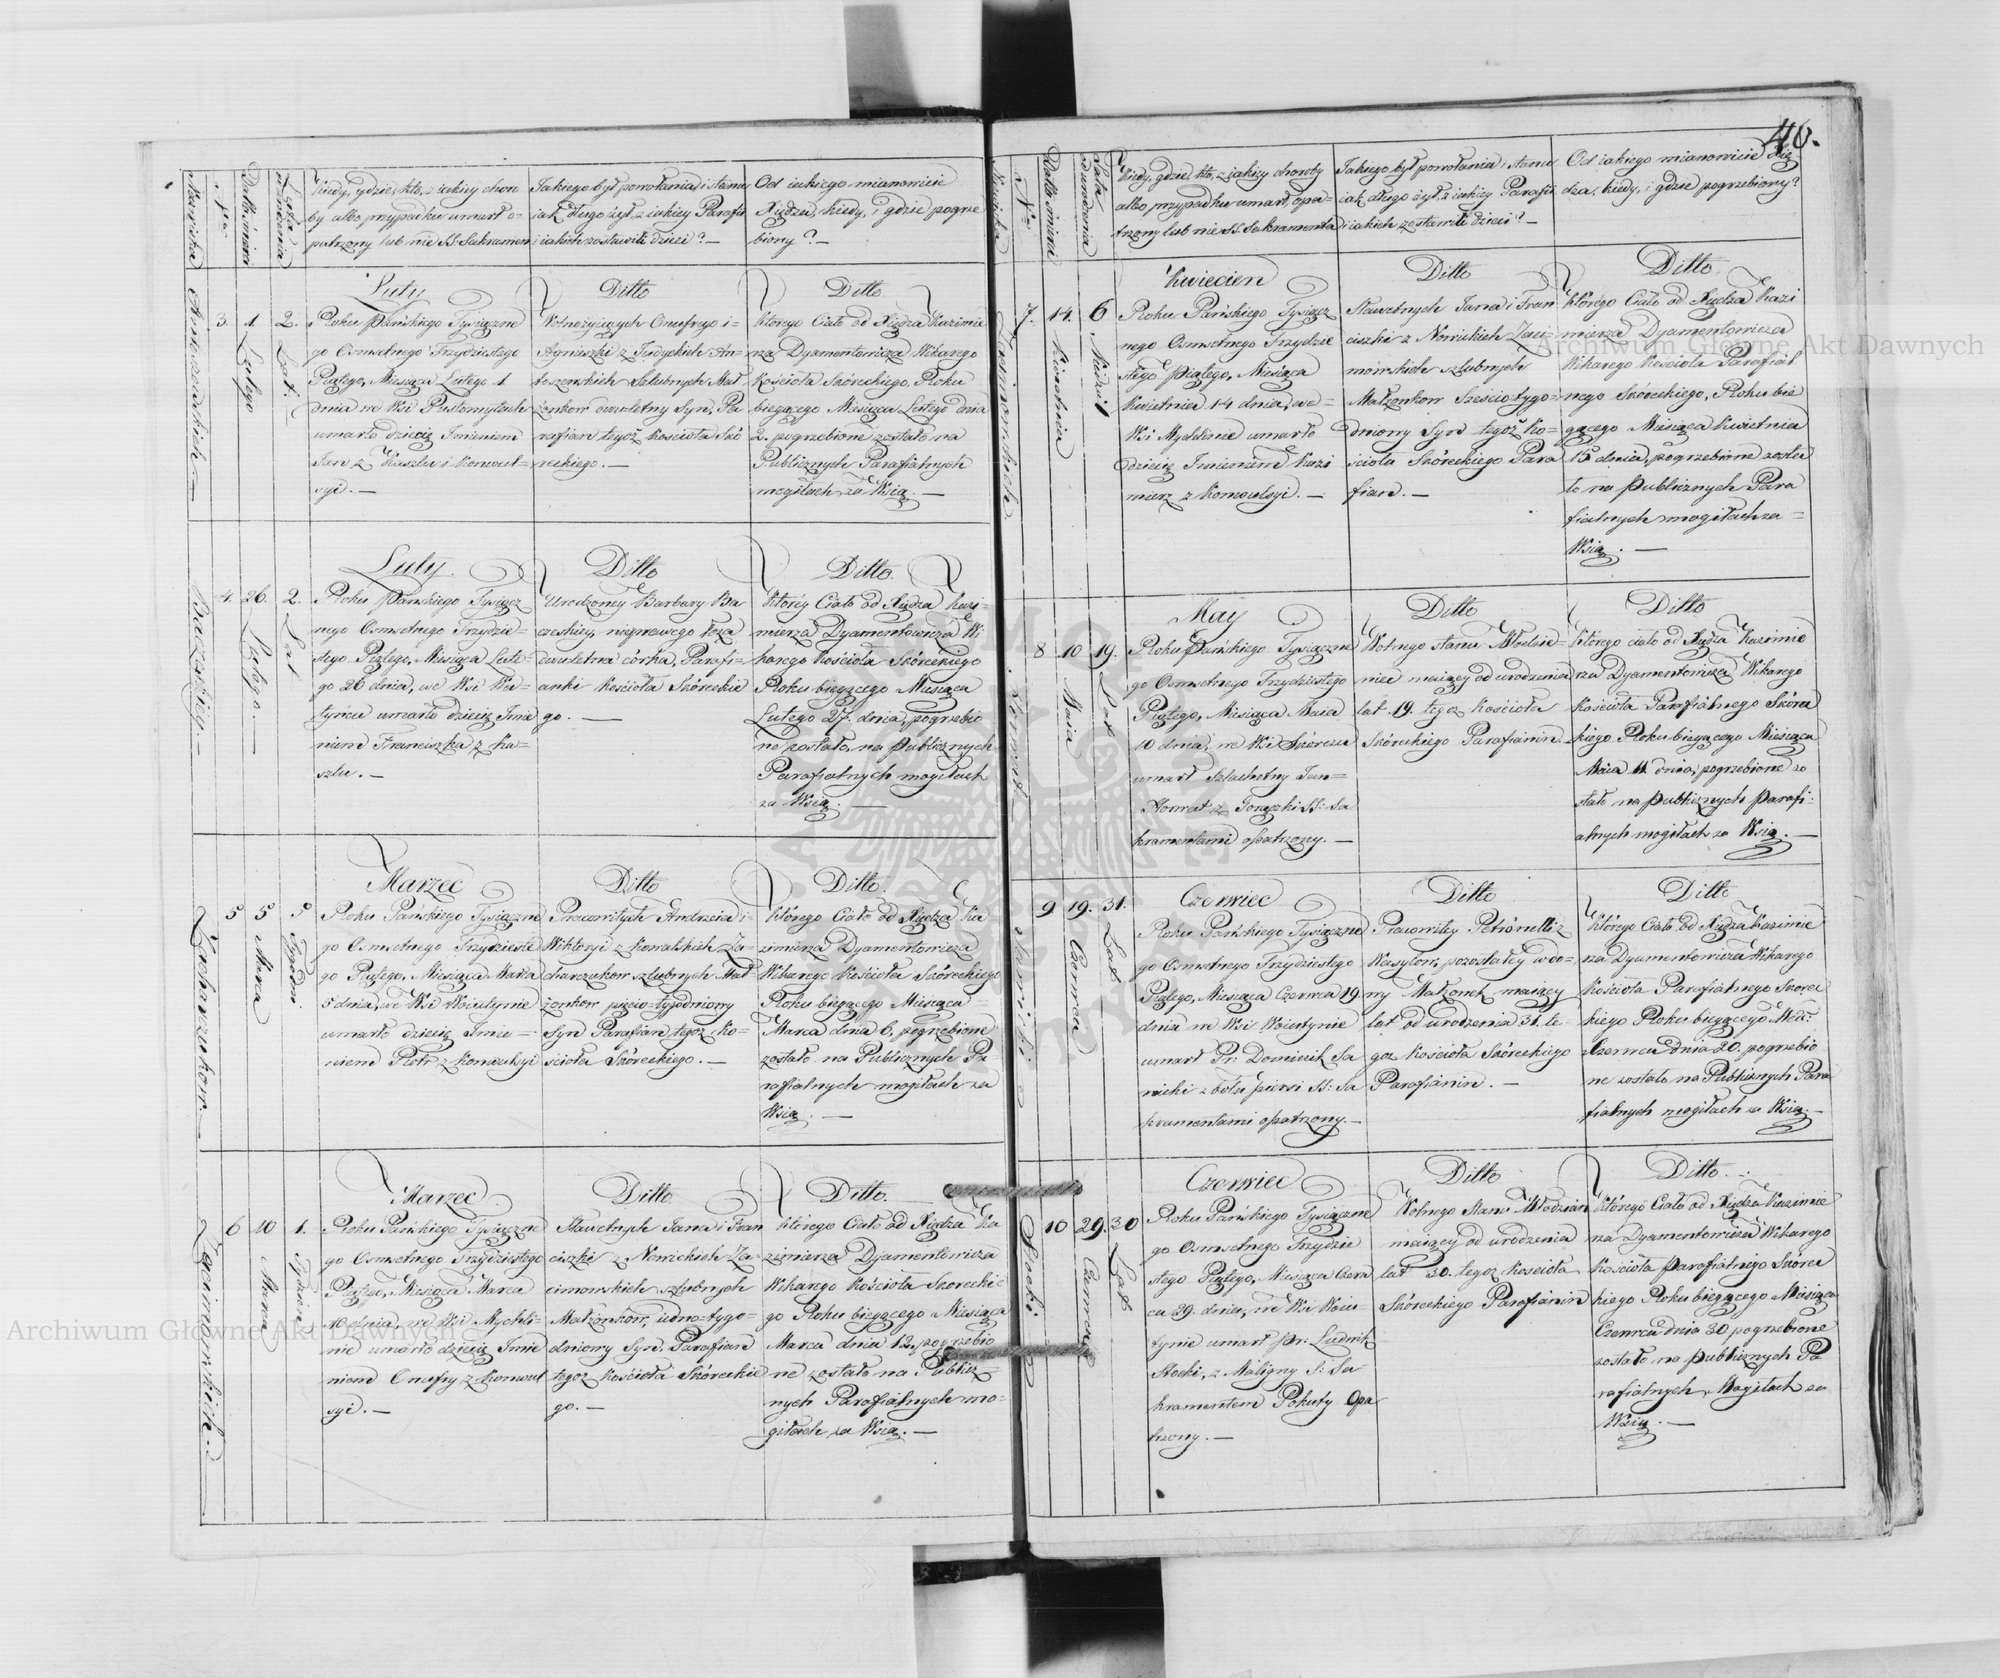 46.
Nazwiska
Nro
Datta śmierci
Lata urodzenia
Kiedy, gdzie, kto, z jakiey choro
by albo przypadku umarł o-
patrzony lub nie SS. Sakramen
Jakiego był powołania i stanu
jak długo żył z jakiey Parafii
i jakich zostawił dzieci? —
Od jakiego mianowicie
Xiędza, kiedy, i gdzie pogrze
biony? —
3. 1. Lutego 2. Lat.
Luty
Roku Pańskiego Tysiączne
go Osmsetnego Trzydziestego
Piątego, Miesiąca Lutego 1
dnia we Wsi Pustomytach
umarło dziecię Imieniem
Jan z Kaszlu i Konwul-
syi. —
Ditto
Wolnożyjących Onufrego i-
Agnieszki z
toszewskich Szlubnych Mał
żonkow dwuletny Syn, Pa
rafian tegoż Kościoła Skó
reckiego. —
Ditto
którego Ciało od Xiędza Kazimie
rza Dyamentowicza Wikarego
Kościoła Skóreckiego, Roku
bieżącego Miesiąca Lutego dnia
2. pogrzebione zostało na
Publicznych Parafialnych
mogiłach za Wsią. —
Baczeskiey. —
4. 26. Lutego. 2. Lat
Luty
Roku Pańskiego Tysiącz
nego Osmsetnego Trzydzie-
stego Piątego, Miesiąca Lute-
go 26 dnia, we Wsi
umarło dziecię Imie
niem Franciszka z Ka-
szlu. —
Ditto
Urodzoney Barbary Ba
czeskiey, nieprawego łoża
dwuletna córka, Parafi-
anki Kościoła Skóreckie
go. —
Ditto.
Którey Ciało od Xiędza Kazi-
mierza Dyamentowicza Wi
karego Kościoła Skóreckiego
Roku bieżącego Miesiąca
Lutego 27. dnia, pogrzebio
ne zostało, na Publicznych
Parafialnych mogiłach
za Wsią. —
Zacharczukow.
5 5 Marca 5 Tygodni
Marzec
Roku Pańskiego Tysiączne
go Osmsetnego Trzydzieste
go Piątego, Miesiąca Marca
5 dnia, we Wsi Woiutynie
umarło dziecię Imie-
niem Piotr z Konwulsyi
Ditto
Pracowitych Andrzeia i-
Wiktoryi z Kowalskich Za-
charczukow szlubnych Mał
żonkow pięcio-tygodniowy
Syn Parafian tegoż Ko-
ścioła Skóreckiego. —
Ditto.
którego Ciało od Xiędza Ka-
zimierza Dyamentowicza
Wikarego Kościoła Skóreckiego
Roku bieżącego Miesiąca-
Marca dnia 6. pogrzebione
zostało na Publicznych Pa-
rafialnych mogiłach za
Wsią. —
Zacimowskich.
6 10 Marca 1. Tydzień
Marzec
Roku Pańskiego Tysiączne
go Osmsetnego Trzydziestego
Piątego, Miesiąca Marca
10 dnia, we Wsi Mychli-
nie umarło dziecię Imie
niem Onufry z Konwul
syi. —
Ditto
Sławetnych Jana i Fran
ciszki z Nowickich Za-
cimowskich szlubnych
Małżonkow, iedno-tygo-
dniowy Syn, Parafian
tegoż Kościoła Skóreckie
go. —
Ditto.
którego Ciało od Xiędza Ka
zimierza Dyamentowicza
Wikarego Kościoła Skoreckie
go Roku bieżącego Miesiąca
Marca dnia 12. pogrzebio
ne zostało na Publicz-
nych Parafialnych mo-
giłach za Wsią. —
Nazwiska
Nro
Datta śmierci
Lata urodzenia
Kiedy, gdzie, kto, z jakiey choroby
albo przypadku umarł, opa-
trzony lub nie SS. Sakramenta
Jakiego był powołania i stanu
jak długo żył z jakiey Parafii
i jakich zostawił dzieci? —
Od jakiego mianowicie Xię
dza, kiedy, i gdzie pogrzebiony?
Zacimowskich.
7. 14. Kwietnia 6 Niedziel
Kwiecien
Roku Pańskiego Tysiącz
nego Osmsetnego Trzydzie
stego Piątego, Miesiąca
Kwietnia 14 dnia, we-
Wsi Mychlinie umarło
dziecię Imieniem Kazi
mierz z Konwulsyi. —
Ditto
Sławetnych Jana i Fran
ciszki z Nowickich Zaci-
mowskich szlubnych
Małżonkow Sześcio-tygo-
dniowy Syn tegoż Ko-
ścioła Skóreckiego Para
fian. —
Ditto
którego Ciało od Xiędza Kazi
mierza Dyamentowicza
Wikarego Kościoła Parafial
nego Skóreckiego, Roku bie
żącego Miesiąca Kwietnia
15 dnia, pogrzebione zosta
ło na Publicznych Para
fialnych mogiłach za-
Wsią. —
8 10 Maia 19. Lat
May
Roku Pańskiego Tysiączne
go Osmsetnego Trzydziestego
Piątego, Miesiąca Maia
10 dnia, we Wsi Skórczu
umarł Szlachetny Jan-
z Gorączki SS: Sa
kramentami opatrzony. —
Ditto
Wolnego stanu Młodzie-
niec maiący od urodzenia
lat 19. tegoż Kościoła
Skóreckiego Parafianin
Ditto
którego ciało od Xiędza Kazimie
rza Dyamentowicza Wikarego
Kościoła Parafialnego Skórec
kiego Roku bieżącego Miesiąca
Maia 11. dnia, pogrzebione zo
stało na Publicznych Parafi-
alnych mogiłach za Wsią. —
9 19. Czerwca 31. Lat
Czerwiec
Roku Pańskiego Tysiączne
go Osmsetnego Trzydziestego
Piątego, Miesiąca Czerwca 19.
dnia we Wsi Woiutynie
umarł Pr: Dominik Sa
wicki z bólu piersi SS: Sa
kramentami opatrzony. —
Ditto
Pracowitey Petronelli z
Wasylow, pozostałey wdo-
wy Małżonek maiący
lat od urodzenia 31. te-
goż Kościoła Skóreckiego
Parafianin. —
Ditto
którego Ciało od Xiędza Kazimie
rza Dyamentowicza Wikarego
Kościoła Parafialnego Skorec
kiego Roku bieżącego
Czerwca dnia 20. pogrzebio
ne zostało na Publicznych Para
fialnych mogiłach za Wsią. —
Słocki
10 29. Czerwca 30 Lat
Czerwiec
Roku Pańskiego Tysiączne
go Osmsetnego Trzydzie
stego Piątego, Miesiąca Czerw
ca 29. dnia, we Wsi Woiu-
tynie umarł Pr: Ludwik
Słocki, z Maligny S: Sa
kramentem Pokuty Opa
trzony. —
Ditto
Wolnego Stanu Młodzian
maiący od urodzenia
lat 30. tegoż Kościoła
Skóreckiego Parafianin
Ditto
którego Ciało od Xiędza Kazimie
rza Dyamentowicza Wikarego
Kościoła Parafialnego Skórec
kiego Roku bieżącego Miesiąca
Czerwca dnia 30 pogrzebione
zostało na Publicznych Pa
rafialnych Mogiłach za
Wsią. —
Archiwum Główne Akt Dawnych
Archiwum Główne Akt Dawnych